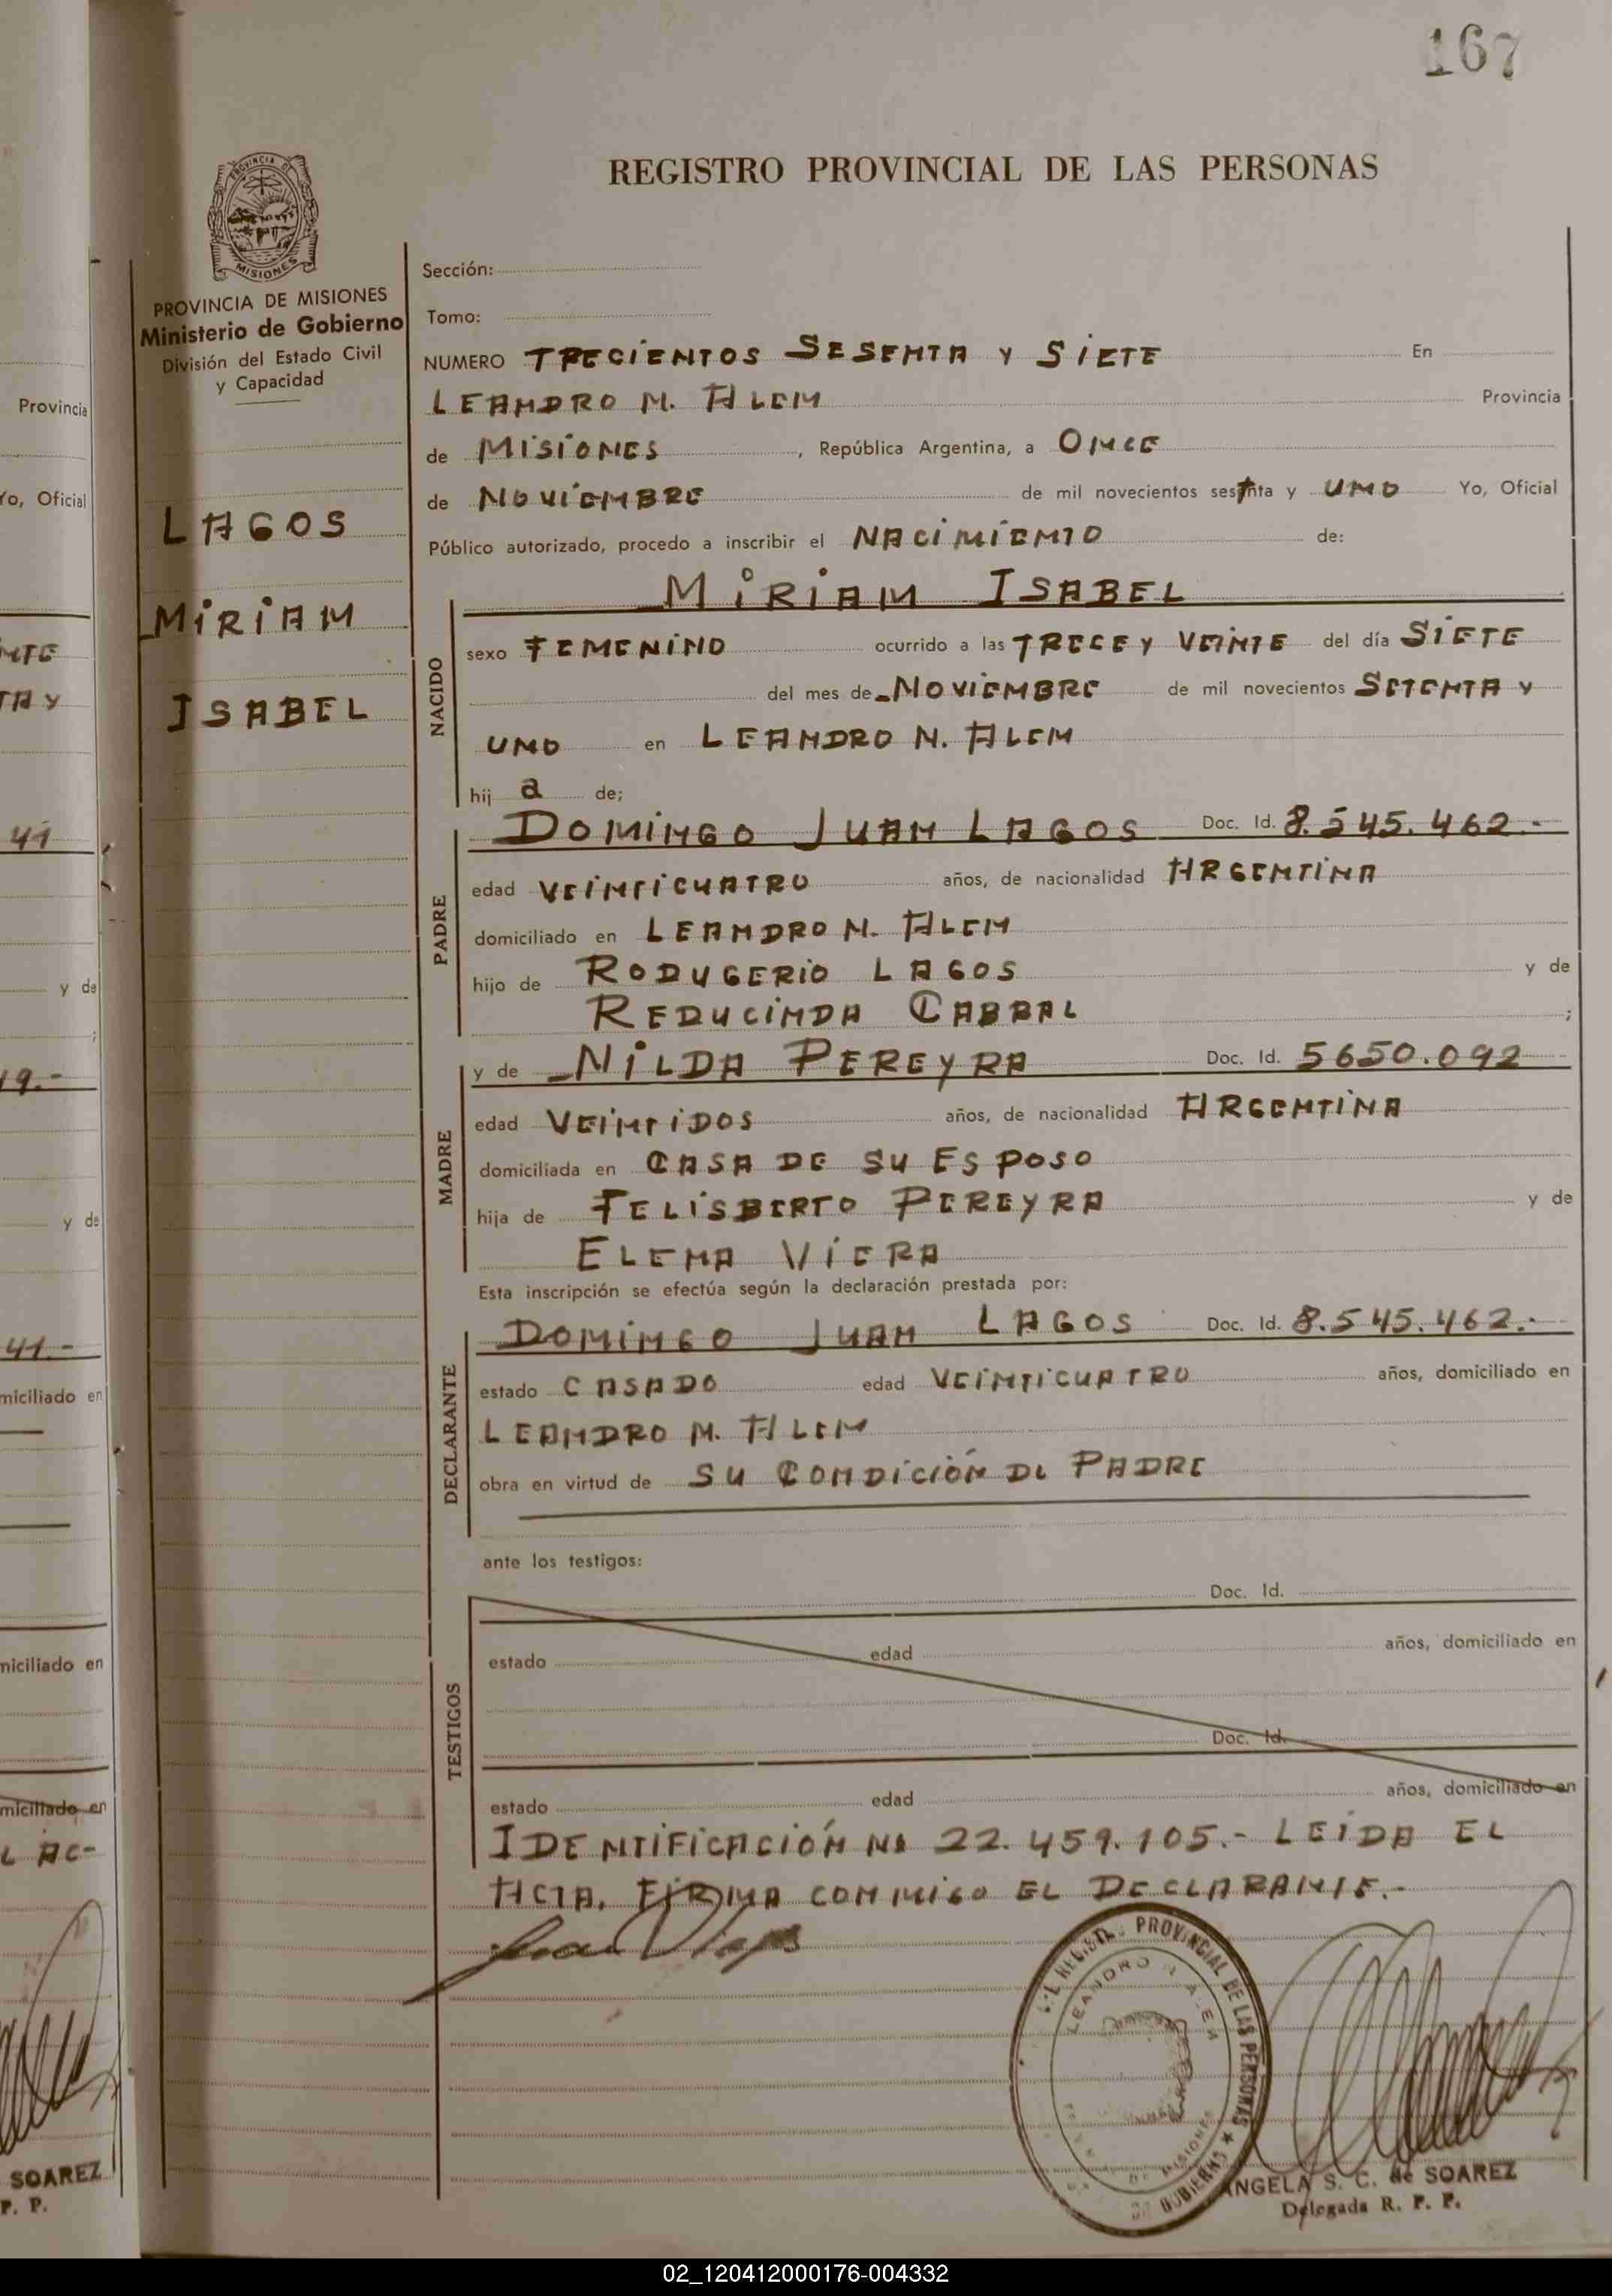 167
REGISTRO PROVINCIAL DE LAS PERSONAS
PROVINCIA DE
MISIONES
PROVINCIA DE MISIONES
Ministerio de Gobierno
División del Estado Civil
y Capacidad
LAGOS
MIRIAM
ISABEL
Sección:
Tomo:
NUMERO TRECIENTOS SESENTA Y SIETE En
LEANDRO N. ALEM Provincia
de MISIONES, República Argentina, a ONCE
de NOVIEMBRE de mil novecientos sesenta y UNO Yo, Oficial
Público autorizado, procedo a inscribir el NACIMIENTO de:
MIRIAM ISABEL
NACIDO
sexo FEMENINO ocurrido a las TRECE Y VEINTE del día SIETE
del mes de NOVIEMBRE de mil novecientos SETENTA Y
UNO en LEANDRO N. ALEM
hij a de;
PADRE
DOMINGO JUAN LAGOS Doc. Id. 8.545.462.-
edad VEINTICUATRO años, de nacionalidad ARGENTINA
domiciliado en LEANDRO N. ALEM
hijo de RODUGERIO LAGOS y de
REDUCINDA CABRAL ;
MADRE
y de NILDA PEREYRA Doc. Id. 5650.092
edad VEINTIDOS años, de nacionalidad ARGENTINA
domiciliada en CASA DE SU ESPOSO
hija de FELISBERTO PEREYRA y de
ELENA VIERA
Esta inscripción se efectúa según la declaración prestada por:
DECLARANTE
DOMINGO JUAN LAGOS Doc. Id. 8.545.462.-
estado CASADO edad VEINTICUATRO años, domiciliado en
LEANDRO N. ALEM
obra en virtud de SU CONDICIÓN DE PADRE
ante los testigos:
TESTIGOS
Doc. Id.
estado edad años, domiciliado en
Doc. Id.
estado edad años, domiciliado en
IDENTIFICACIÓN Nº 22.459.105.- LEÍDA EL
ACTA. FIRMA CONMIGO EL DECLARANTE.-
PROVINCIAL DE LAS PERSONAS
LEANDRO N ALEM
MISIONES
ANGELA S. C. de SOAREZ
Delegada R. P. P.
Provincia
Yo, Oficial
NTE
TA Y
41
y de
;
19.-
y de
41.-
miciliado en
miciliado en
miciliado en
L AC-
SOAREZ
P. P.
02_120412000176-004332